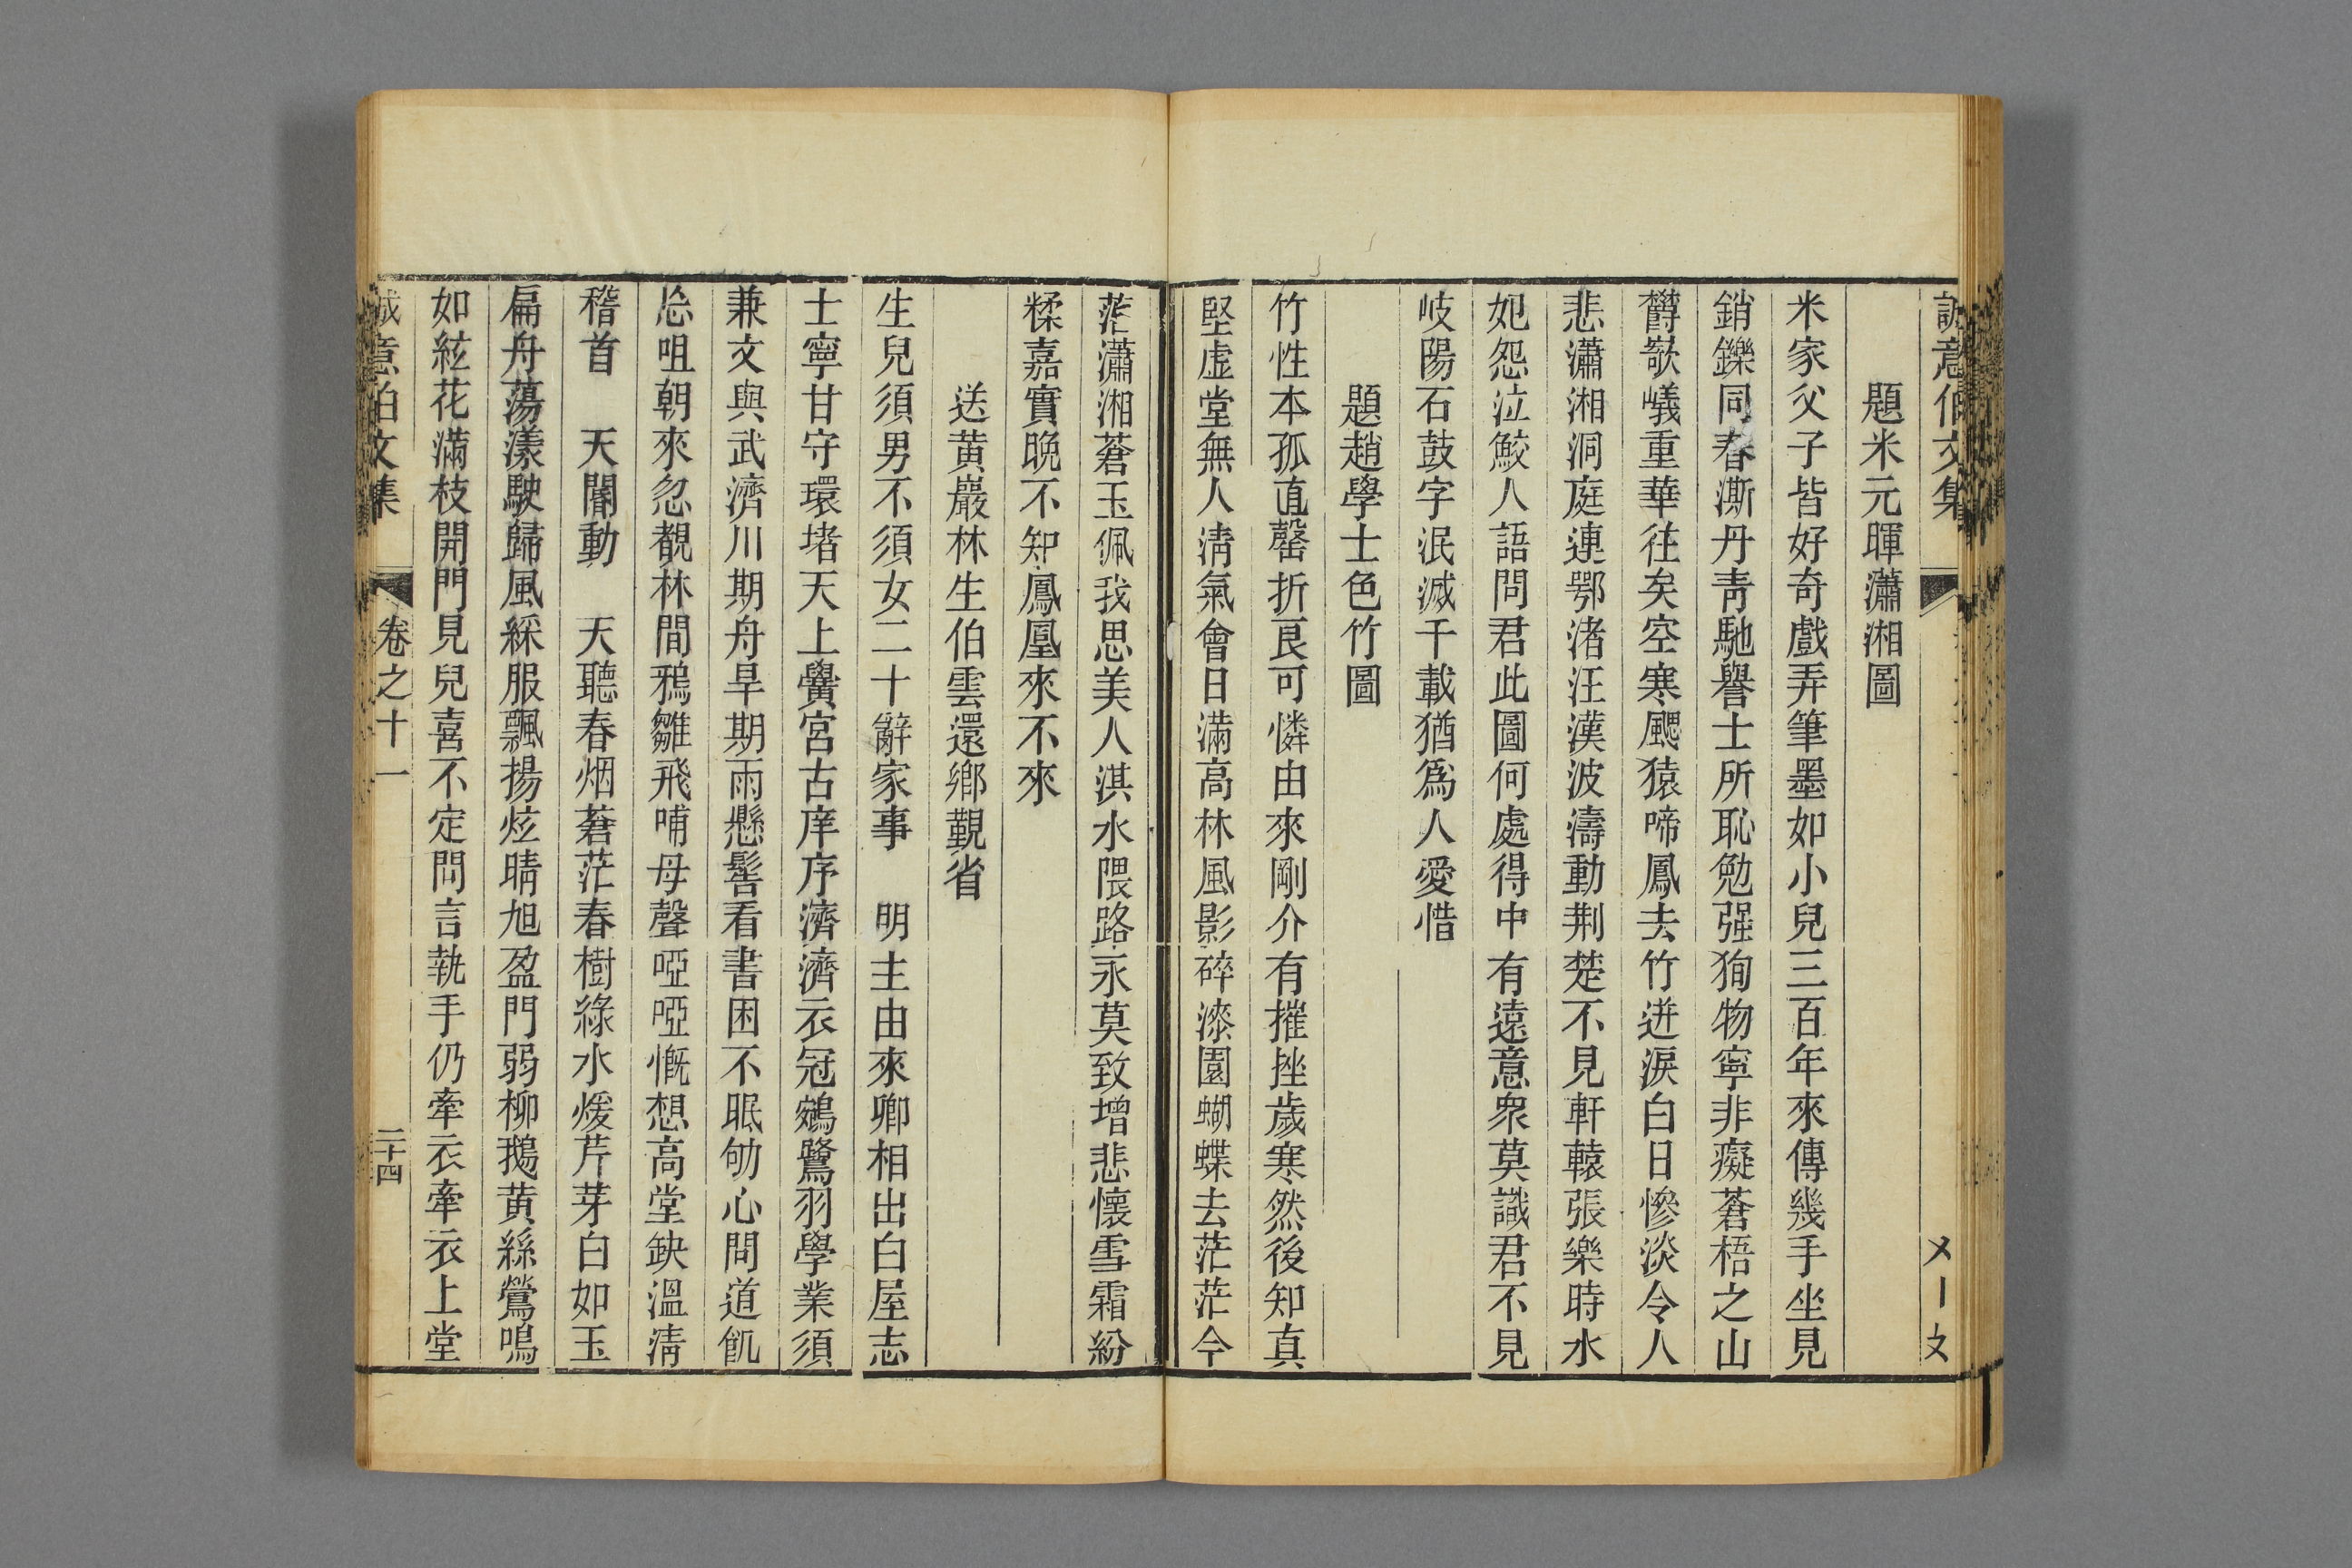 誠意伯文集
題米元暉瀟湘圖
米家父子皆好奇戲弄筆墨如小兒三百年來傳幾手坐見
銷鑠同春澌丹青馳譽士所恥勉强狥物寧非癡蒼梧之山
欝嶔巇重華往矣空寒颸猿啼鳳去竹迸淚白日慘淡令人
悲瀟湘洞庭連鄂渚汪漢波濤動荆楚不見軒轅張樂時水
妃怨泣鮫人語問君此圖何處得中有遠意衆莫識君不見
岐陽石鼓字泯滅千載猶爲人愛惜
題趙學士色竹圖
竹性本孤直罄折良可憐由來剛介有摧挫歲寒然後知真
堅虛堂無人清氣會日滿高林風影碎漆園蝴蝶去茫茫今
茫瀟湘蒼玉佩我思美人淇水隈路永莫致增悲懷雪霜紛
糅嘉實晚不知鳳凰來不來
送黄巖林生伯雲還鄉覲省
生兒須男不須女二十辭家事　明主由來卿相出白屋志
士寧甘守環堵天上黌宮古庠序濟濟衣冠鵷鷺羽學業須
兼文與武濟川期舟旱期雨懸髻看書困不眠劬心問道飢
忘咀朝來忽覩林間鴉雛飛哺母聲啞啞慨想高堂缺溫清
稽首　天閽動　天聽春烟蒼茫春樹綠水煖芹芽白如玉
扁舟蕩漾駛歸風綵服飄揚炫晴旭盈門弱柳鵝黄絲鶯鳴
如絃花滿枝開門見兒喜不定問言執手仍牽衣牽衣上堂
誠意伯文集　卷之十一　二十四